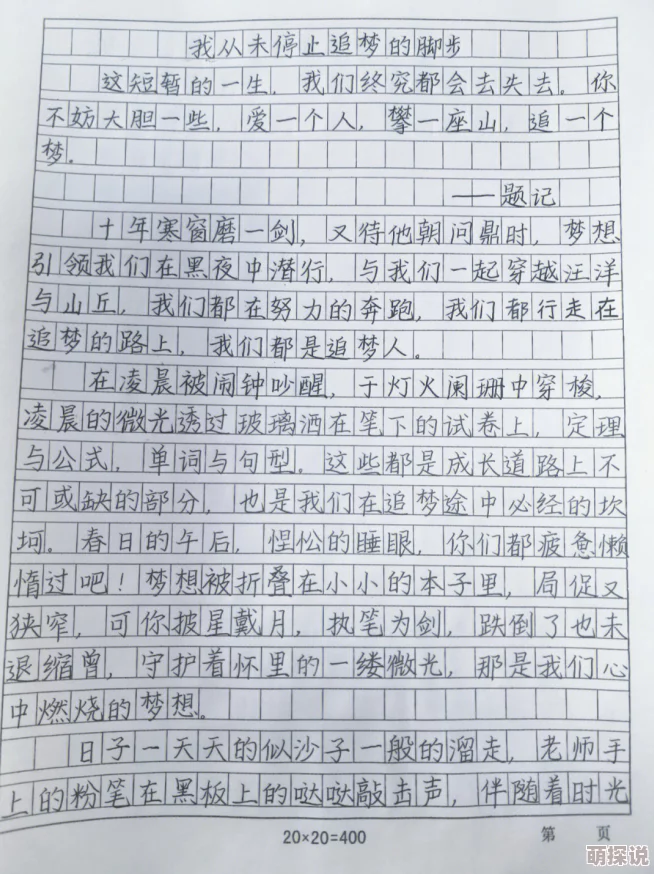 我从未停止追梦的脚步
这短暂的一生，我们终究都会去失去。你
不妨大胆一些，爱一个人，攀一座山，追一个
梦。
——题记
十年寒窗磨一剑，又待他朝问鼎时，梦想
引领我们在黑夜中潜行，与我们一起穿越汪洋
与山丘，我们都在努力的奔跑，我们都行走在
追梦的路上，我们都是追梦人。
在凌晨被闹钟吵醒，于灯火阑珊中穿梭，
凌晨的微光透过玻璃洒在笔下的试卷上，定理
与公式，单词与句型，这些都是成长道路上不
可或缺的部分，也是我们在追梦途中必经的坎
坷。春日的午后，惺忪的睡眼，你们都疲惫懒
惰过吧！梦想被折叠在小小的本子里，局促又
狭窄，可你披星戴月，执笔为剑，跌倒了也未
退缩曾，守护着怀里的一缕微光，那是我们心
中燃烧的梦想。
日子一天天的似沙子一般的溜走，老师手
上的粉笔在黑板上的哒哒敲击声，伴随着时光
20×20=400 第 页
萌探说